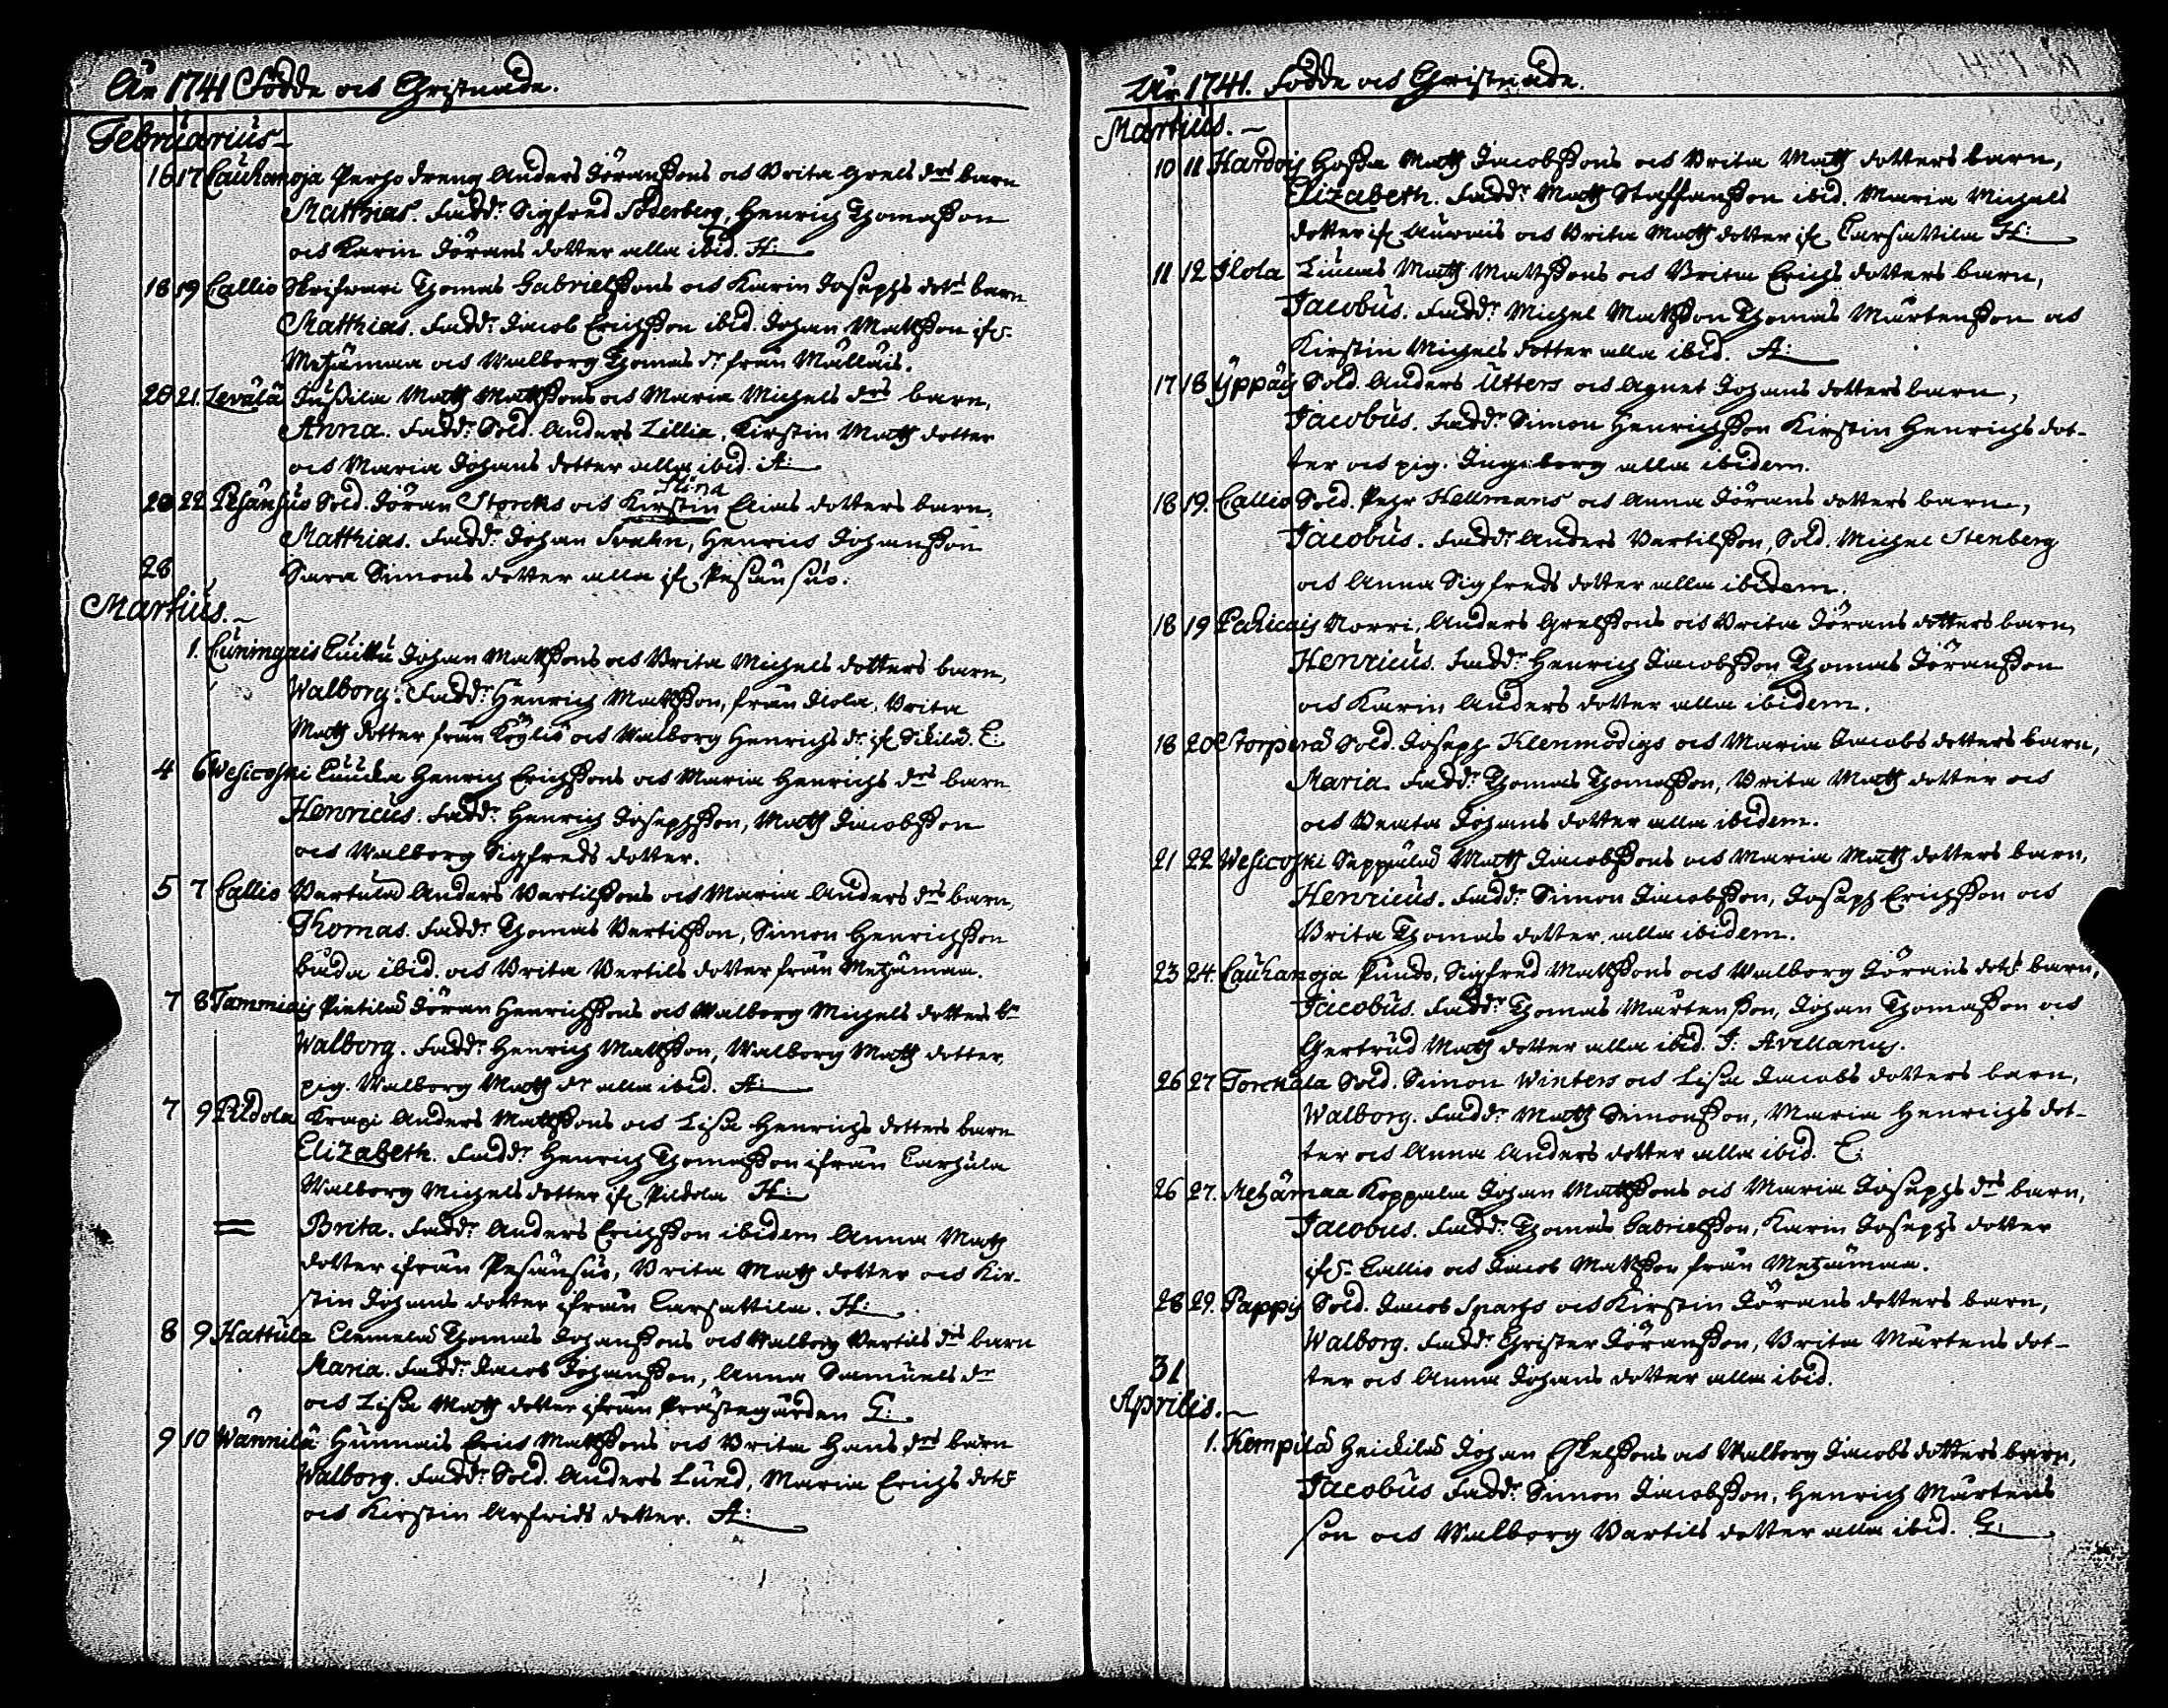 År 1741 Födde och Christnade.
Februarius
16 17 Cauhanoja Perho dreng Anders Jöranssons och Brita Grels drs barn
Matthias. Fadd: Sigfred Söderberg, Henrich Thomasson
och Karin Jörans dotter alla ibid. H:
18 19 Callio Skrifvari Thomas Gabrielssons och Karin Josephs dotrs barn
Matthias. Fadd: Jacob Erichsson ibid. Johan Mattsson ifr.
Metzämaa och Walborg Thomas dr från Mälläis.
20 21. Leväla Jussila Matth Mattssons och Maria Michels drs barn,
Anna. Fadd: Sold. Anders Lillia, Kirstin Matth dotter
och Maria Johans dotter alla ibid. A:
Stina
20 22 Pesänsuo Sold. Jöran Storcks och Kirstin Elias dotters barn,
Matthias. Fadd: Johan Svahn, Henric Johansson
28 Sara Simons dotter alla ifr Pesänsuo.
Martius.
1. Cuningais Cuitti Johan Mattssons och Brita Michels dotters barn,
Walborg. Fadd: Henrich Mattsson, från Ilola, Brita
Matth dotter från Köyliö och Walborg Henrichs dr ifr Sikilä. C:
4 6 Wesicoski Caucka Henrich Erichssons och Maria Henrichs drs barn
Henricus. Fadd: Henrich Josephsson, Matth Jacobsson
och Walborg Sigfreds dotter.
5 7 Callio Bertula Anders Bertilssons och Maria Anders drs barn,
Thomas. Fadd: Thomas Bertilsson, Simon Henrichsson
båda ibid. och Brita Bertils dotter från Metzämaa.
7 8 Tammiais Pietilä Jöran Henrichssons och Walborg Michels dotters bn
Walborg. Fadd: Henrich Mattsson, Walborg Matth dotter,
pig. Walborg Matth dr alla ibid. A:
7 9 Pildola Krapi Anders Mattssons och Lisa Henrichs dotters barn
Elizabeth. Fadd: Henrich Thomasson ifrån Carhula
Walborg Michels dotter ifr Pildola H:
= Brita. Fadd: Anders Erichsson ibidem Anna Matth
dotter ifrån Pesänsuo, Brita Matth dotter och Kir-
stin Johans dotter ifrån Carsattila. H:
8 9 Hattula Clemelä Thomas Johanssons och Walborg Bertils drs barn
Maria. Fadd: Jacob Johansson, Anna Samuels dr
och Lisa Matth dotter ifrån Prästegården G:
9 10 Wännilä Hunnais Eric Mattssons och Brita Hans drs barn
Walborg. Fadd: Sold. Anders Lund, Maria Erichs dotr
och Kirstin Arfvids dotter. A:
År 1741. Födde och Christnade.
Martius.
10 11 Hardois Hossa Matth Jacobssons och Brita Matth dotters barn,
Elizabeth. Fadd: Matth Staffansson ibid. Maria Michels
dotter ifr Aurais och Brita Matth dotter ifr Carsattila H:
11 12 Ilola Linnas Matth Mattssons och Brita Erichs dotters barn,
Jacobus. Fadd: Michel Mattsson Thomas Mårtensson och
Kirstin Michels dotter alla ibid. A:
17 18 Yppäis Sold. Anders Utters och Agnet Johans dotters barn,
Jacobus. Fadd: Simon Henrichsson Kirstin Henrichs dot-
ter och pig. Ingeborg alla ibidem.
18 19. Callio Sold. Pehr Hellmans och Anna Jörans dotters barn,
Jacobus. Fadd: Anders Bertilsson, Sold. Michel Stenberg
och Anna Sigfreds dotter alla ibidem.
18 19 Pahicais Norri, Anders Grelssons och Brita Jörans dotters barn,
Henricus. Fadd: Henrich Jacobsson Thomas Jöransson
och Karin Anders dotter alla ibidem.
18 20 Storperä Sold. Joseph Klenmodigs och Maria Jacobs dotters barn,
Maria. Fadd: Thomas Thomasson, Brita Matth dotter och
och Beata Johans dotter alla ibidem.
21 22 Wesicoski Seppälä Matth Jacobssons och Maria Matth dotters barn,
Henricus. Fadd: Simon Jacobsson, Joseph Erichsson och
Brita Thomas dotter, alla ibidem.
23 24. Cauhanoja Pundo, Sigfred Mattssons och Walborg Jörans dotrs barn,
Jacobus. Fadd: Thomas Mårtensson, Johan Thomasson och
Gertrud Matth dotter alla ibid. J: Avellanus.
26 27 Torckala Sold. Simon Winters och Lisa Jacobs dotters barn,
Walborg. Fadd: Matth Simonsson, Maria Henrichs dot-
ter och Anna Anders dotter alla ibid. C:
26 27. Metzämaa Koppala Johan Mattssons och Maria Josephs drs barn,
Jacobus. Fadd: Thomas Gabrielsson, Karin Josephs dotter
ifr: Callio och Jacob Mattsson från Metzämaa.
28 29. Pappis Sold. Jacob Spachs och Kirstin Jörans dotters barn,
Walborg. Fadd: Christer Jöransson, Brita Mårtens dot-
31 ter och Anna Johans dotter alla ibid.
Aprilis.
1. Kempilä Heickilä Johan Eskelssons och Walborg Jacobs dotters barn,
Jacobus Fadd: Simon Jacobsson, Henrich Mårtens
son och Walborg Bertils dotter alla ibid. G: